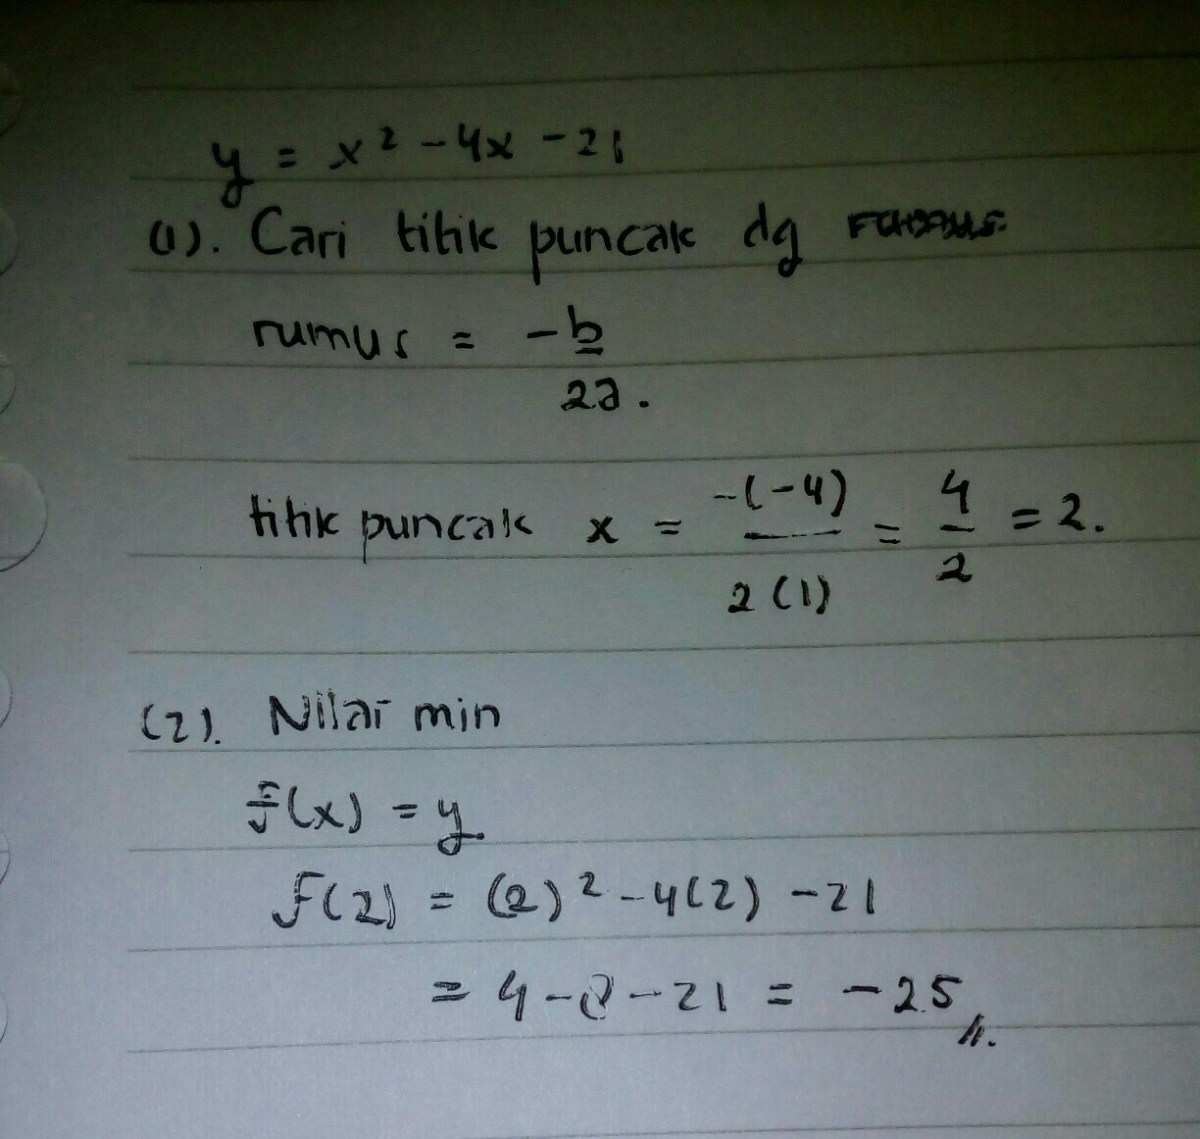 y = x² - 4x - 21
(1). Cari titik puncak dg
rumus = -b
2a.
titik puncak x = -(-4) = 4 = 2.
2(1) 2
(2). Nilai min
f(x) = y
F(2) = (2)² - 4(2) - 21
= 4 - 8 - 21 = -25